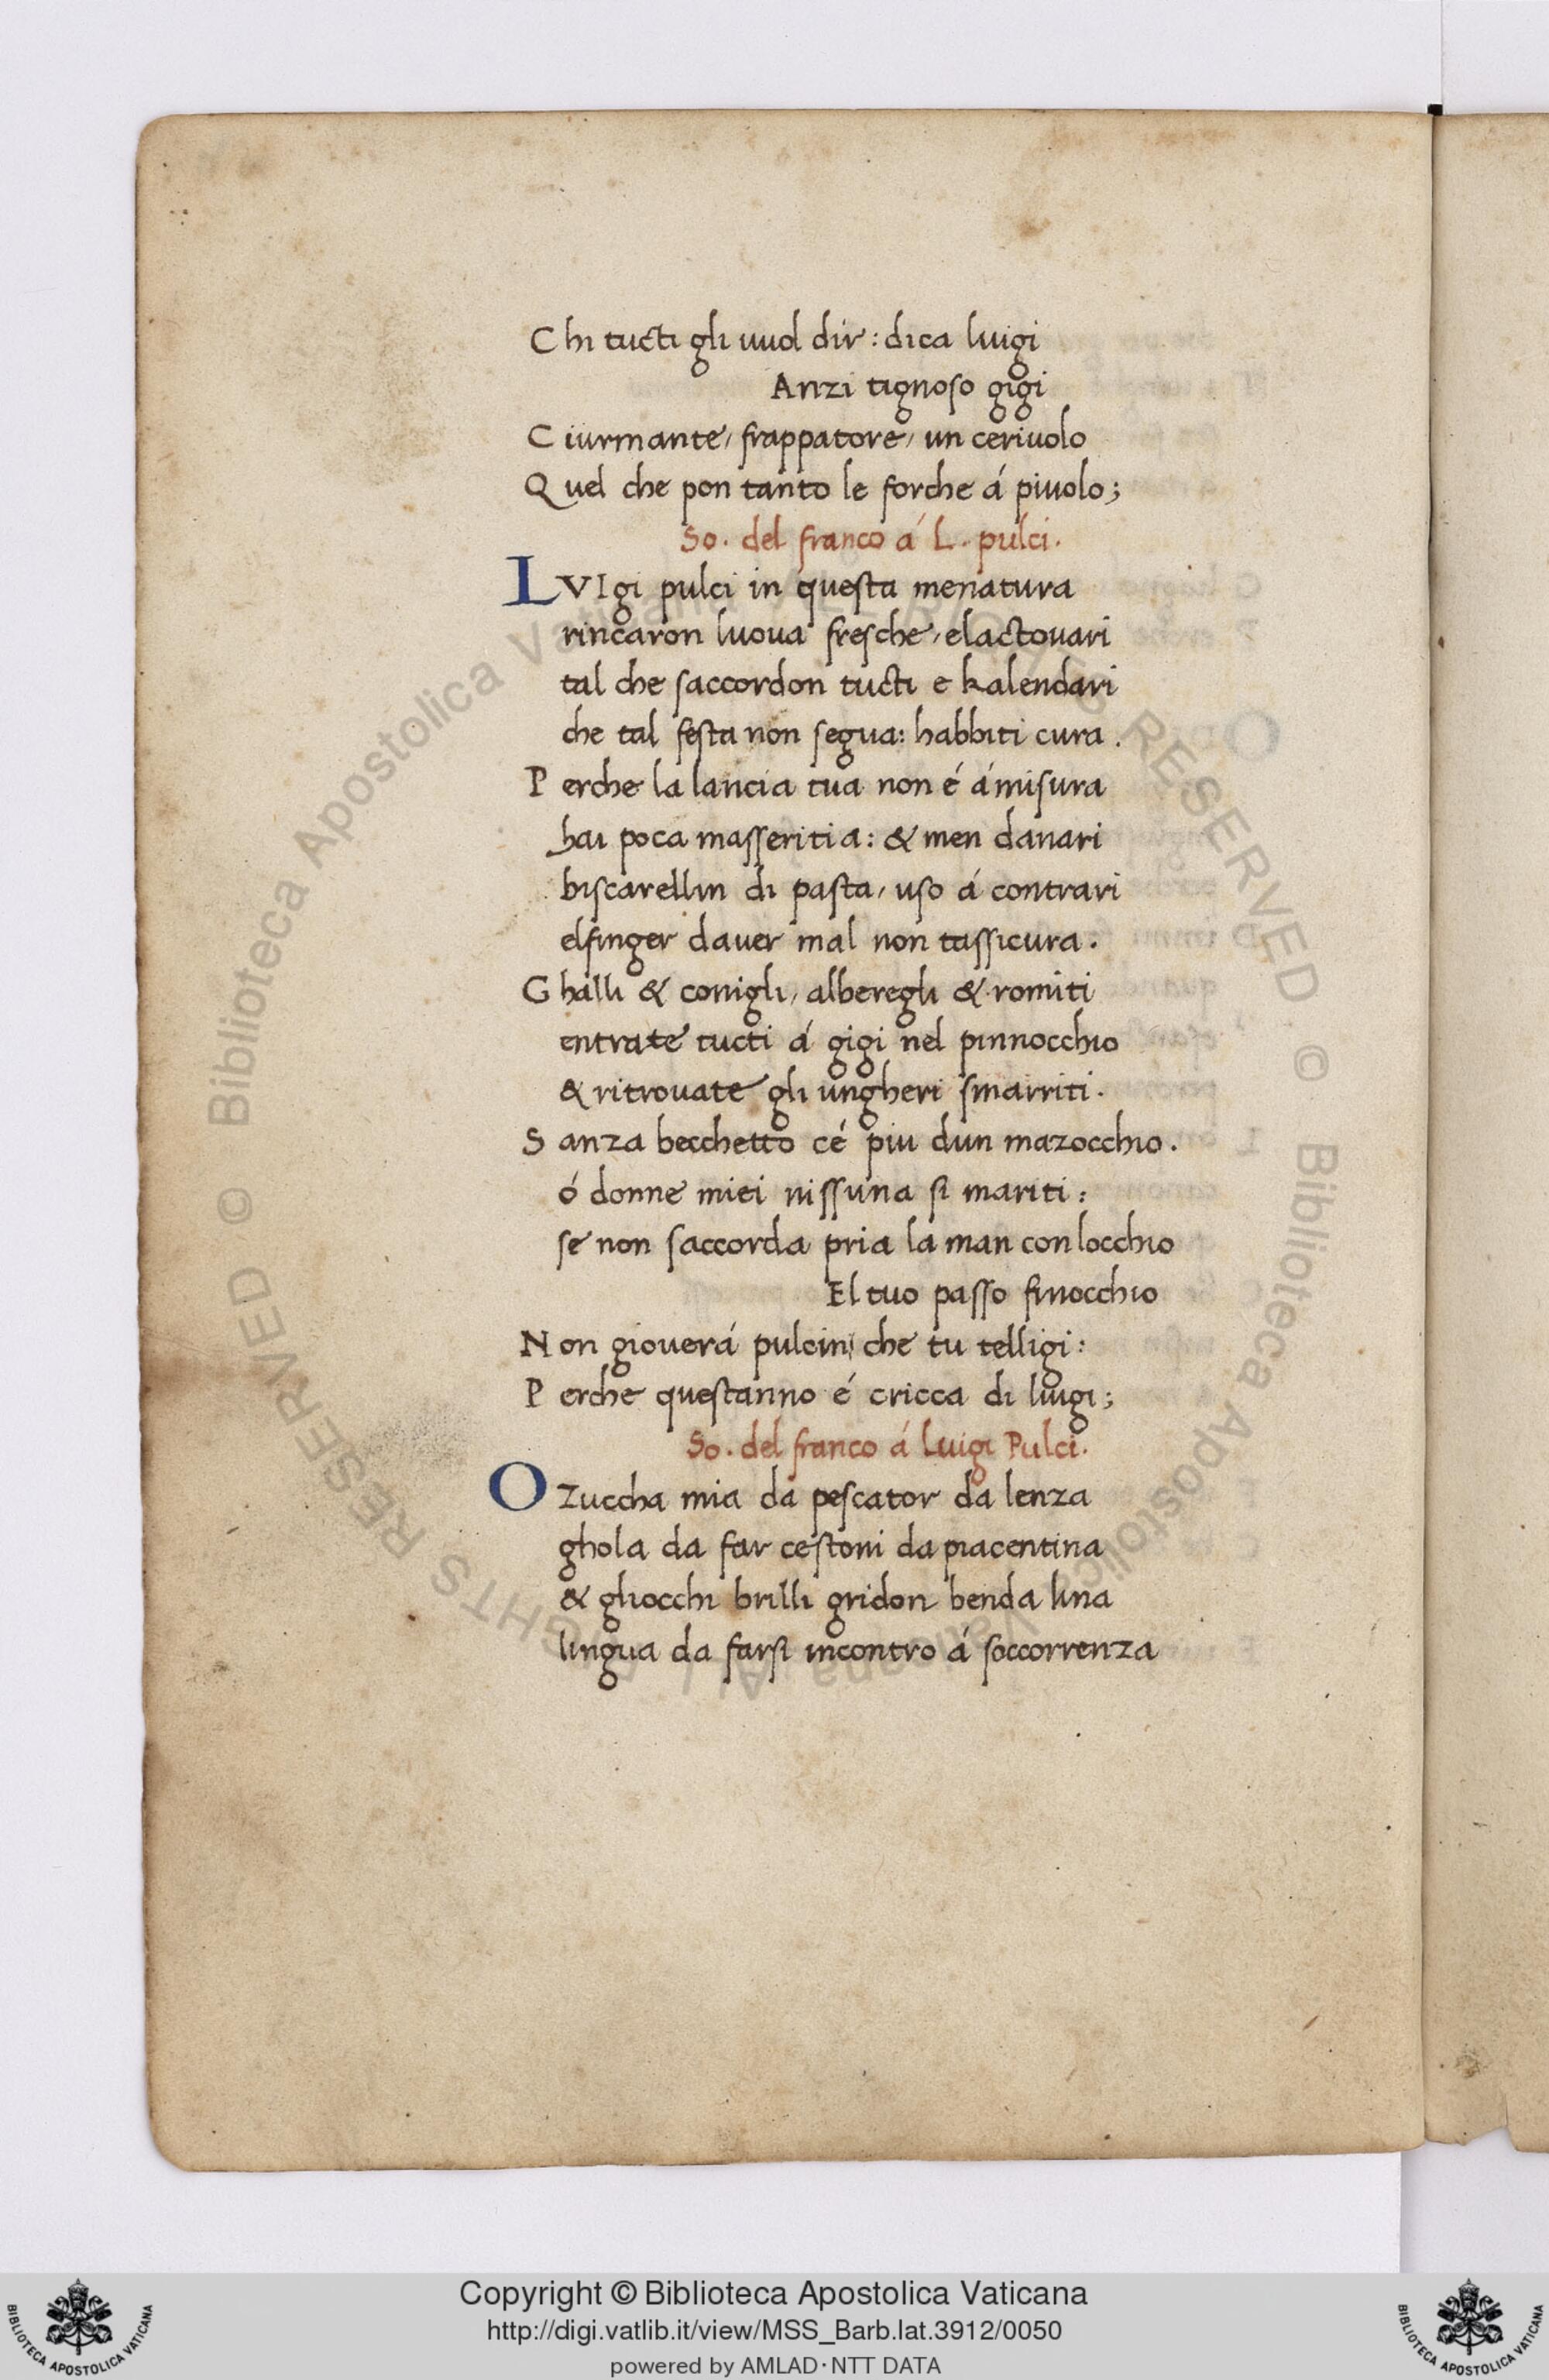 Chi tucti gli uuol dir: dica luigi
Anzi tignoso gigi
Ciurmante, frappatore, un ceriuolo
Quel che pon tanto le forche á piuolo;
So. del franco á L. pulci.
LVIgi pulci in questa menatura
rincaron luoua fresche, elactouari
tal che saccordon tucti e kalendari
che tal festa non segua: habbiti cura.
Perche la lancia tua non é á misura
hai poca masseritia: & men danari
biscarellin di pasta, uso á contrari
elfinger dauer mal non tassicura.
Ghalli & conigli, alberegli & romiti
entrate tucti á gigi nel pinnocchio
& ritrouate gli ungheri smarriti.
Sanza becchetto cé piu dun mazocchio.
ó donne miei nissuna si mariti:
se non saccorda pria la man con locchio
El tuo passo finocchio
Non giouerá pulcin, che tu telligi:
Perche questanno é cricca di luigi;
So. del franco á Luigi Pulci.
O Zuccha mia da pescator da lenza
ghola da far cestoni da piacentina
& gliocchi brilli gridon benda lina
lingua da farsi incontro á soccorrenza
Copyright © Biblioteca Apostolica Vaticana
http://digi.vatlib.it/view/MSS_Barb.lat.3912/0050
powered by AMLAD·NTT DATA